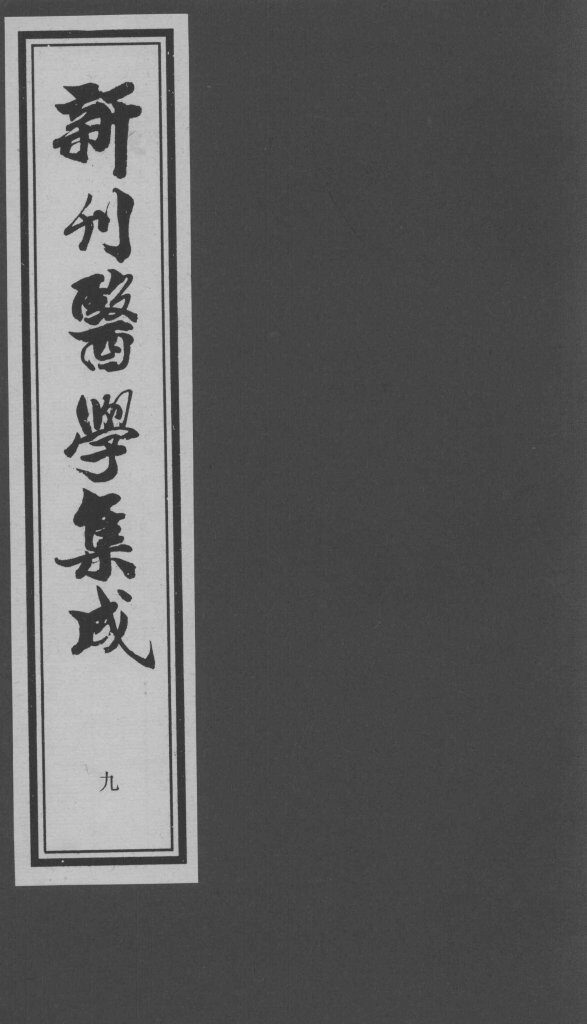 新刊醫學集成
九